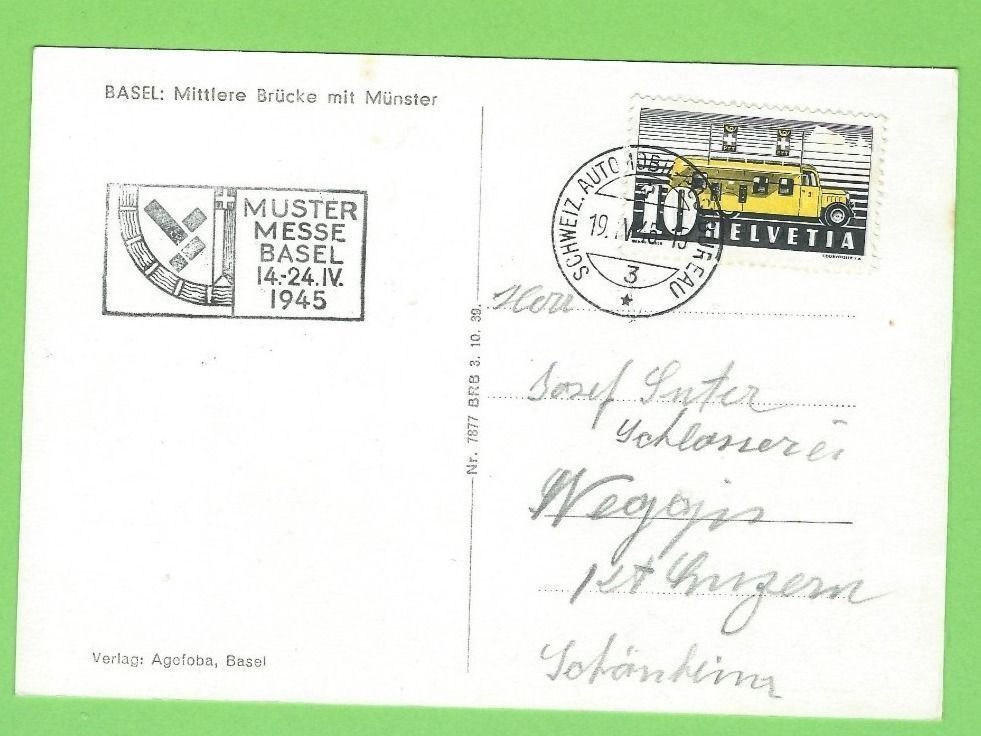 BASEL: Mittlere Brücke mit Münster
MUSTER
MESSE
BASEL
14.-24.IV.
1945
Verlag: Agefoba, Basel
Nr. 7877 BRB 3. 10. 39.
SCHWEIZ. AUTOMOBIL-POSTBUREAU
19.IV.45
3
10
HELVETIA
COURVOISIER S.A.
Herr
Josef Suter
Schlosserei
Weggis
Kt Luzern
Schönheim